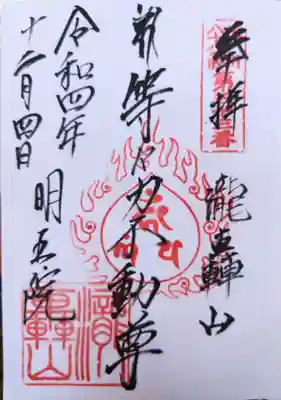 奉拝
瀧轟山
等々力不動尊
明王院
令和四年
十二月四日
瀧
轟山